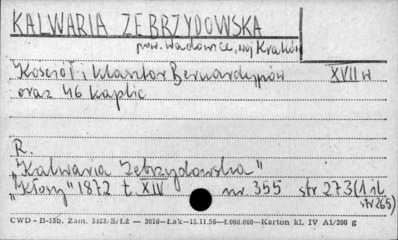 KALWARIA ZEBRZYDOWSKA
pow. Wadowice, woj Kraków
Kościół i klasztor Bernardynów XVII w
oraz 46 kaplic
R.
"Kalwaria Zebrzydowska"
"Kłosy" 1872 t. XIV nr 355 str 273 (1 il.
str 265)
CWD - D-15b. Zam. 5823/S/ŁŻ — 3016—Łak—15.11.56—4.000.000—Karton kl. IV A1/200 g